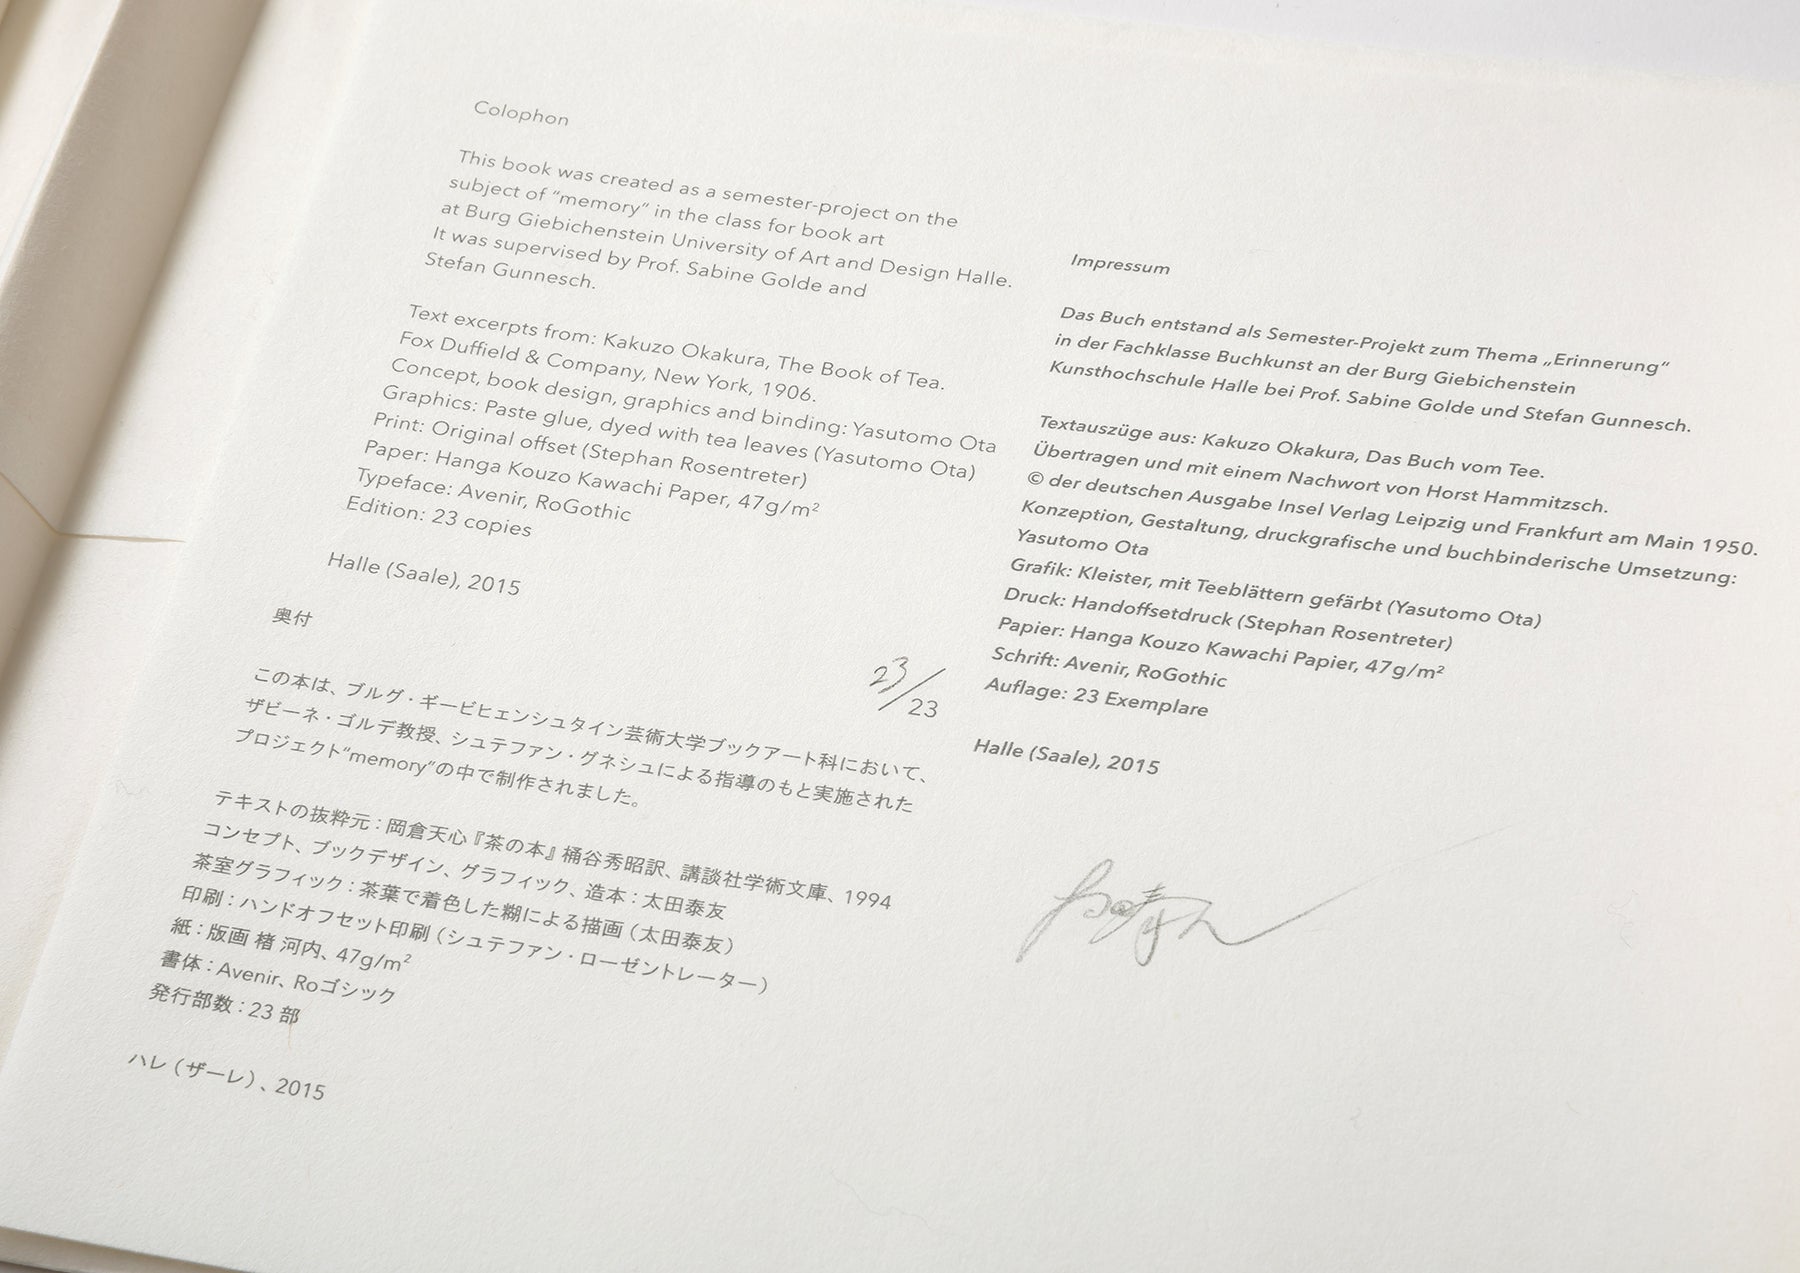 Colophon
This book was created as a semester-project on the
subject of “memory” in the class for book art
at Burg Giebichenstein University of Art and Design Halle.
It was supervised by Prof. Sabine Golde and
Stefan Gunnesch.
Text excerpts from: Kakuzo Okakura, The Book of Tea.
Fox Duffield & Company, New York, 1906.
Concept, book design, graphics and binding: Yasutomo Ota
Graphics: Paste glue, dyed with tea leaves (Yasutomo Ota)
Print: Original offset (Stephan Rosentreter)
Paper: Hanga Kouzo Kawachi Paper, 47g/m²
Typeface: Avenir, RoGothic
Edition: 23 copies
Halle (Saale), 2015
奥付
この本は、ブルグ・ギービヒェンシュタイン芸術大学ブックアート科において、
ザビーネ・ゴルデ教授、シュテファン・グネシュによる指導のもと実施された
プロジェクト“memory”の中で制作されました。
テキストの抜粋元：岡倉天心『茶の本』桶谷秀昭訳、講談社学術文庫、1994
コンセプト、ブックデザイン、グラフィック、造本：太田泰友
茶室グラフィック：茶葉で着色した糊による描画（太田泰友）
印刷：ハンドオフセット印刷（シュテファン・ローゼントレーター）
紙：版画 楮 河内、47g/m²
書体：Avenir、Roゴシック
発行部数：23 部
ハレ（ザーレ）、2015
23/23
Impressum
Das Buch entstand als Semester-Projekt zum Thema „Erinnerung“
in der Fachklasse Buchkunst an der Burg Giebichenstein
Kunsthochschule Halle bei Prof. Sabine Golde und Stefan Gunnesch.
Textauszüge aus: Kakuzo Okakura, Das Buch vom Tee.
Übertragen und mit einem Nachwort von Horst Hammitzsch.
© der deutschen Ausgabe Insel Verlag Leipzig und Frankfurt am Main 1950.
Konzeption, Gestaltung, druckgrafische und buchbinderische Umsetzung:
Yasutomo Ota
Grafik: Kleister, mit Teeblättern gefärbt (Yasutomo Ota)
Druck: Handoffsetdruck (Stephan Rosentreter)
Papier: Hanga Kouzo Kawachi Papier, 47g/m²
Schrift: Avenir, RoGothic
Auflage: 23 Exemplare
Halle (Saale), 2015